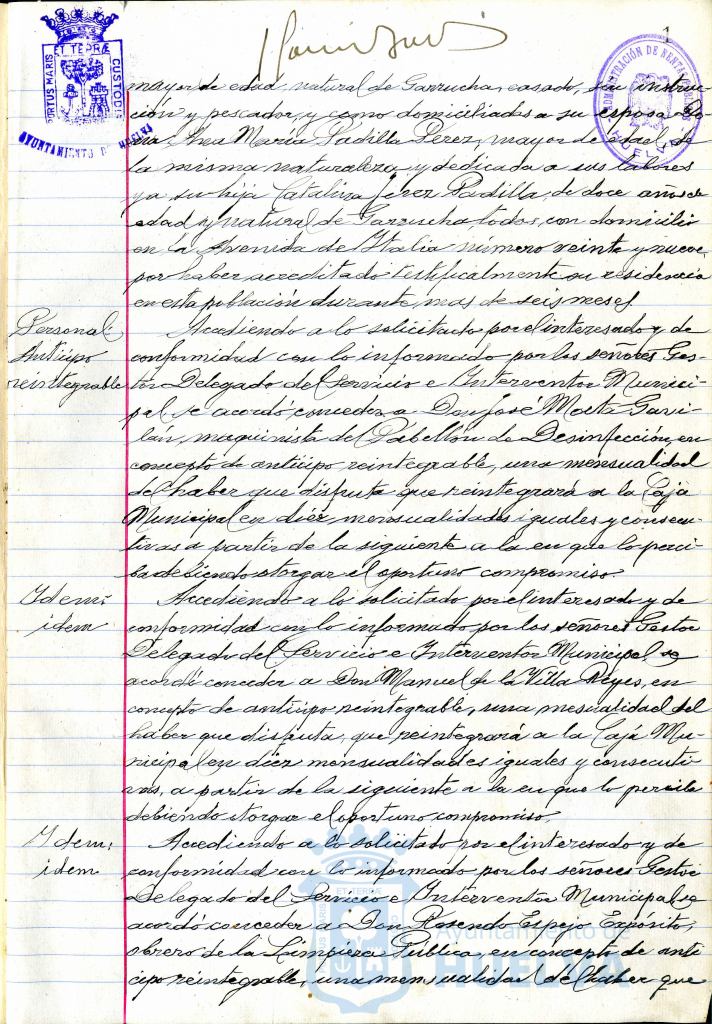 1
PORTUS MARIS ET TERRÆ CUSTODIA
AYUNTAMIENTO DE HUELVA
ADMINISTRACIÓN DE RENTAS PÚBLICAS
HUELVA
mayor de edad, natural de Garrucha, casado, sin instruc-
ción y pescador, y como domiciliados a su esposa Do-
ña Ana María Padilla Pérez, mayor de edad, de
la misma naturaleza, y dedicada a sus labores
y a su hija Catalina Jerez Padilla, de doce años de
edad y natural de Garrucha, todos, con domicilio
en la Avenida de Italia número veinte y nueve,
por haber acreditado testificalmente su residencia
en esta población durante mas de seis meses
Personal:
Anticipo
reintegrable
Accediendo a lo solicitado por el interesado y de
conformidad con lo informado por los señores Ges-
tor Delegado del Servicio e Interventor Munici-
pal se acordó conceder a Don José Gavi-
lán, maquinista del Pabellón de Desinfección, en
concepto de anticipo reintegrable, una mensualidad
del haber que disfruta que reintegrará a la Caja
Municipal en diéz mensualidades iguales y consecu-
tivas a partir de la siguiente a la en que lo perci-
ba debiendo otorgar el oportuno compromiso.
Idem:
idem
Accediendo a lo solicitado por el interesado y de
conformidad con lo informado por los señores Gestor
Delegado del Servicio e Interventor Municipal se
acordó conceder a Don Manuel de la Villa Reyes, en
concepto de anticipo reintegrable, una mesualidad del
haber que disfruta, que reintegrará a la Caja Mu-
nicipal en diéz mensualidades iguales y consecuti-
vas, a partir de la siguiente a la en que lo perciba
debiendo otorgar el oportuno compromiso.
Idem:
idem
Accediendo a lo solicitado por el interesado y de
conformidad con lo informado por los señores Gestor
Delegado del Servicio e Interventor Municipal se
acordó conceder a Don Rosendo Espejo Expósito,
obrero de la Limpieza Pública, en concepto de anti
cipo reintegrable, una mensualidad del haber que
Ayuntamiento de
HUELVA